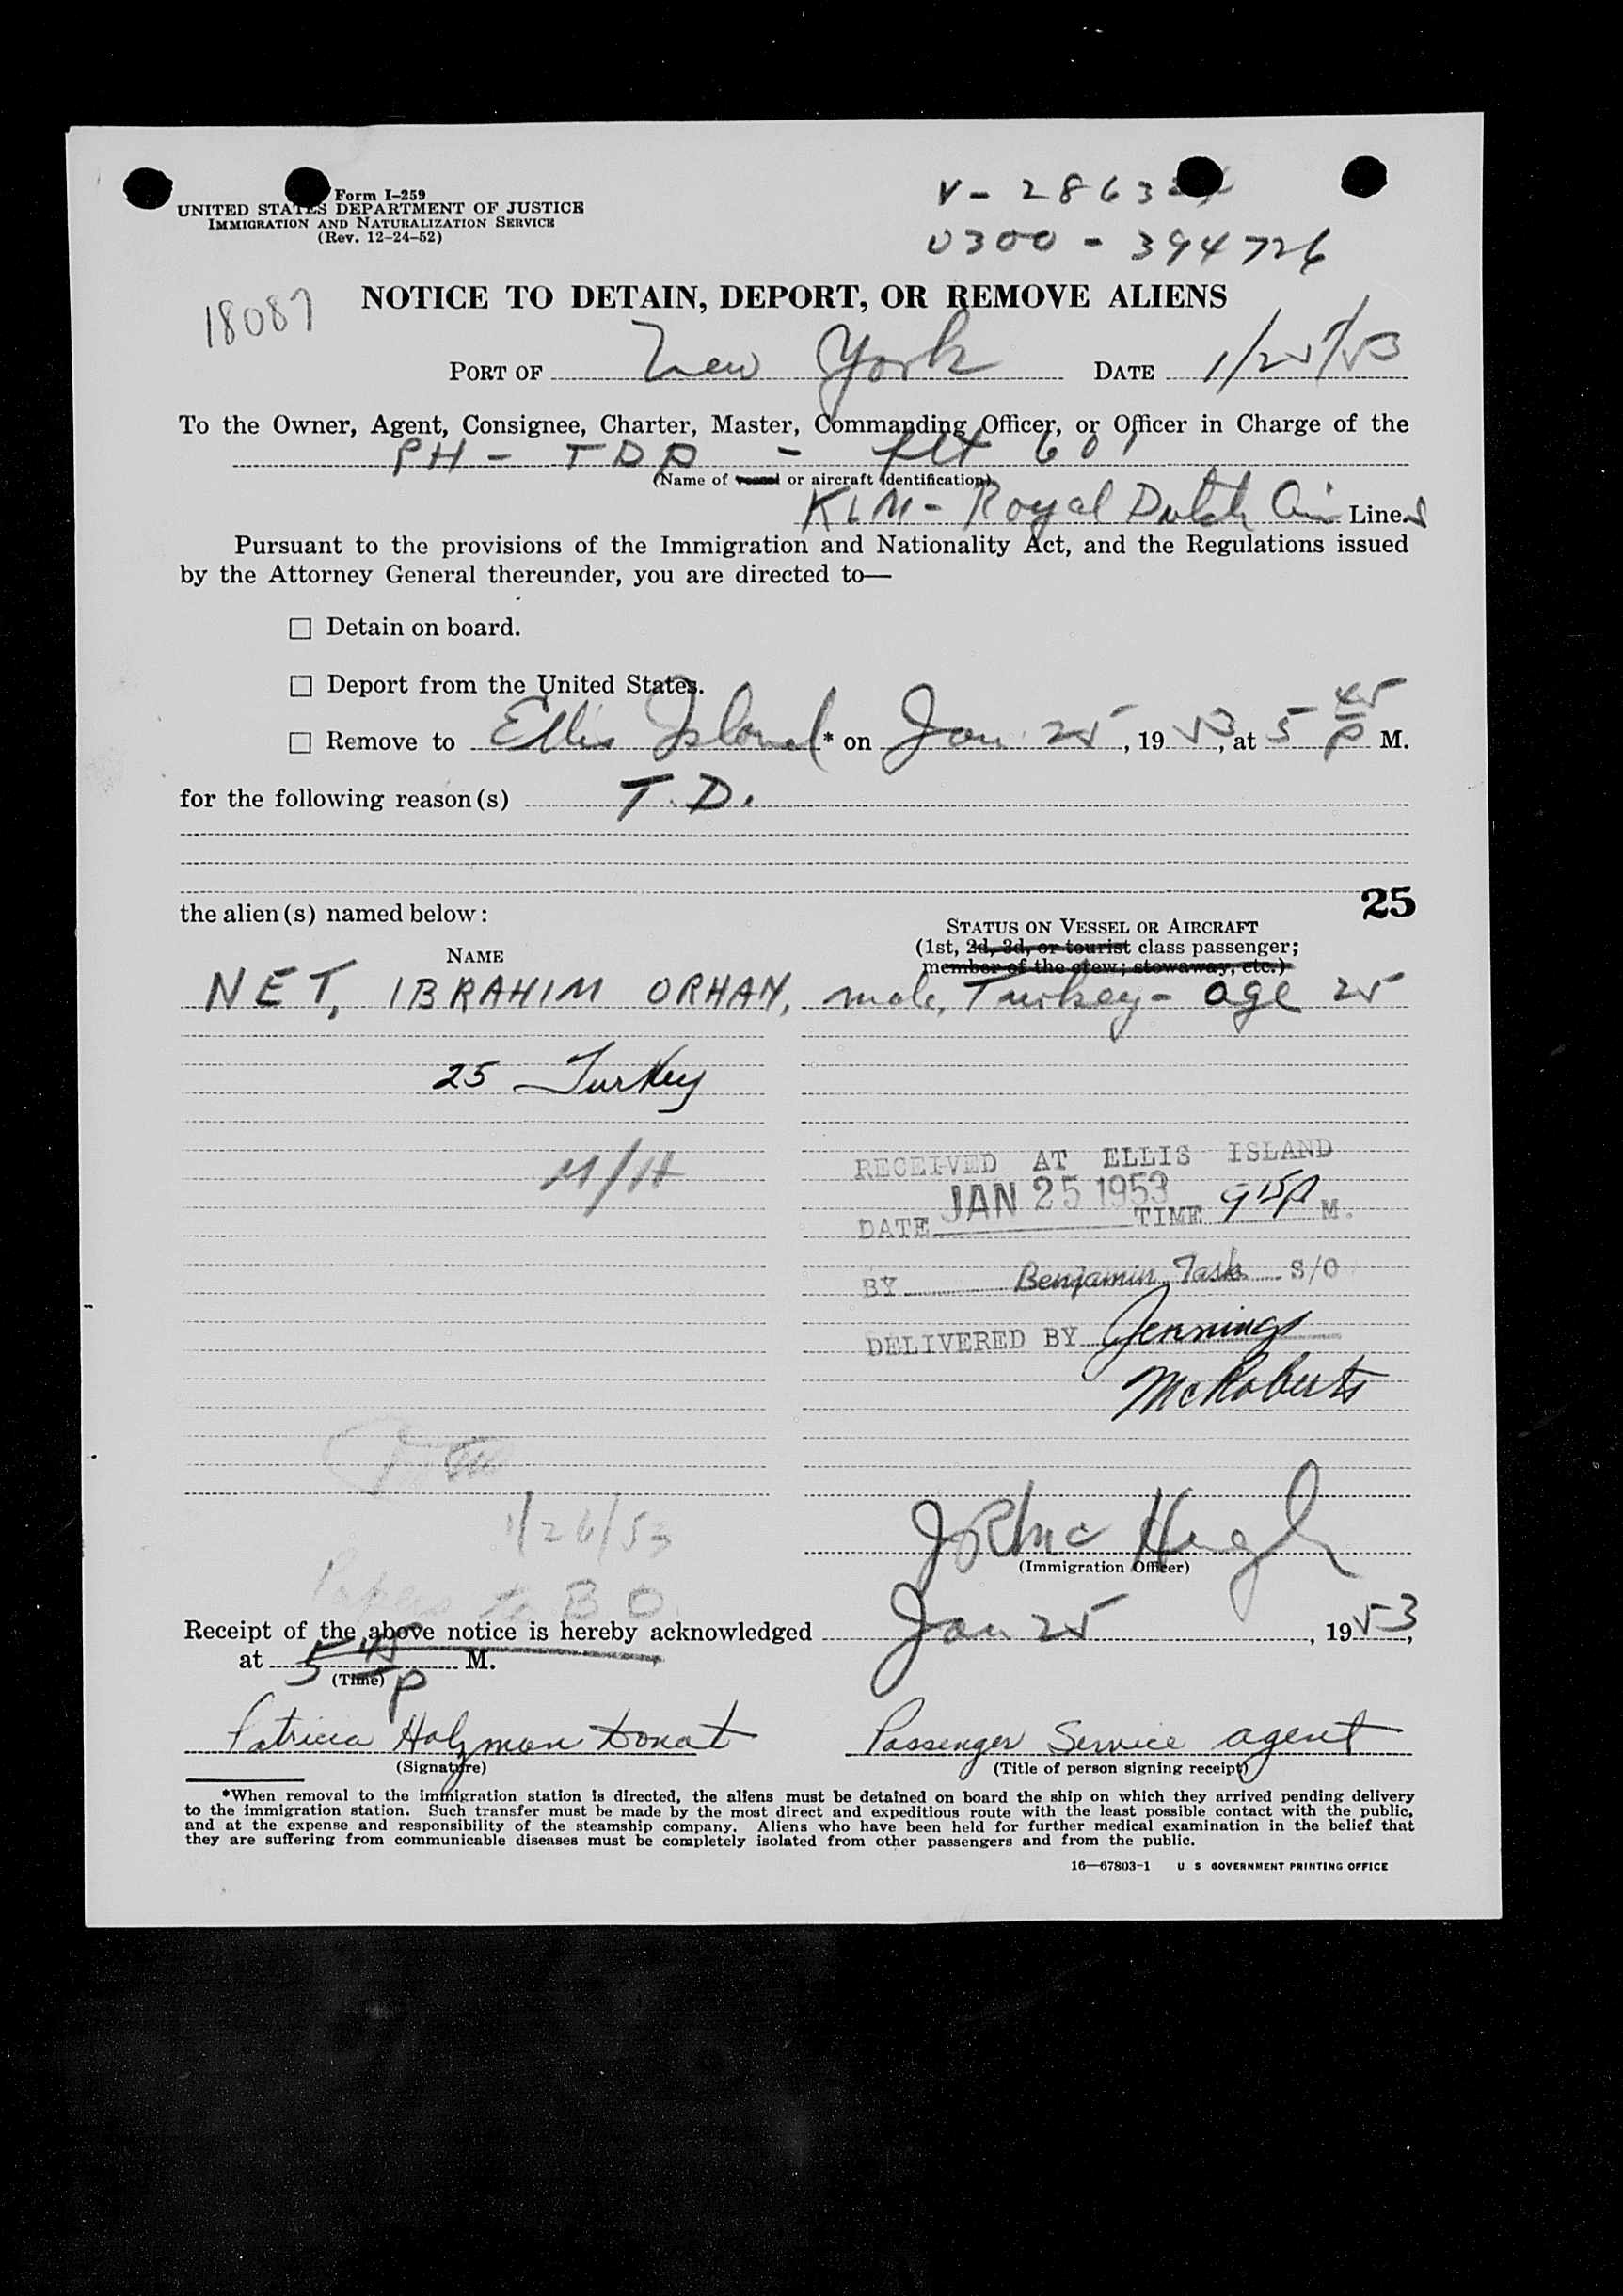 Form I-259
UNITED STATES DEPARTMENT OF JUSTICE
IMMIGRATION AND NATURALIZATION SERVICE
(Rev. 12-24-52)
V- 2863
0300 - 394726
18087
NOTICE TO DETAIN, DEPORT, OR REMOVE ALIENS
PORT OF New York DATE 1/25/53
To the Owner, Agent, Consignee, Charter, Master, Commanding Officer, or Officer in Charge of the
PH - TDP - flt 601
(Name of vessel or aircraft identification)
KLM - Royal Dutch Air Lines
Pursuant to the provisions of the Immigration and Nationality Act, and the Regulations issued
by the Attorney General thereunder, you are directed to—
☐ Detain on board.
☐ Deport from the United States.
☐ Remove to Ellis Island* on Jan 25, 1953, at 5 45 P M.
for the following reason(s) T.D.
25
the alien(s) named below:
STATUS ON VESSEL OR AIRCRAFT
(1st, 2d, 3d, or tourist class passenger;
NAME
member of the crew; stowaway, etc.)
NET, IBRAHIM ORHAN, male, Turkey - age 25
25 Turkey
M/H
RECEIVED AT ELLIS ISLAND
DATE JAN 25 1953 TIME 9 15 P M.
BY Benjamin Task S/O
DELIVERED BY Jennings
McRoberts
1/26/53
JR McHugh
(Immigration Officer)
Papers to B O
Receipt of the above notice is hereby acknowledged Jan 25, 1953,
at 5 45 P M.
(Time)
Patricia Holzman Donat Passenger Service agent
(Signature) (Title of person signing receipt)
*When removal to the immigration station is directed, the aliens must be detained on board the ship on which they arrived pending delivery
to the immigration station. Such transfer must be made by the most direct and expeditious route with the least possible contact with the public,
and at the expense and responsibility of the steamship company. Aliens who have been held for further medical examination in the belief that
they are suffering from communicable diseases must be completely isolated from other passengers and from the public.
16—67803-1 U S GOVERNMENT PRINTING OFFICE